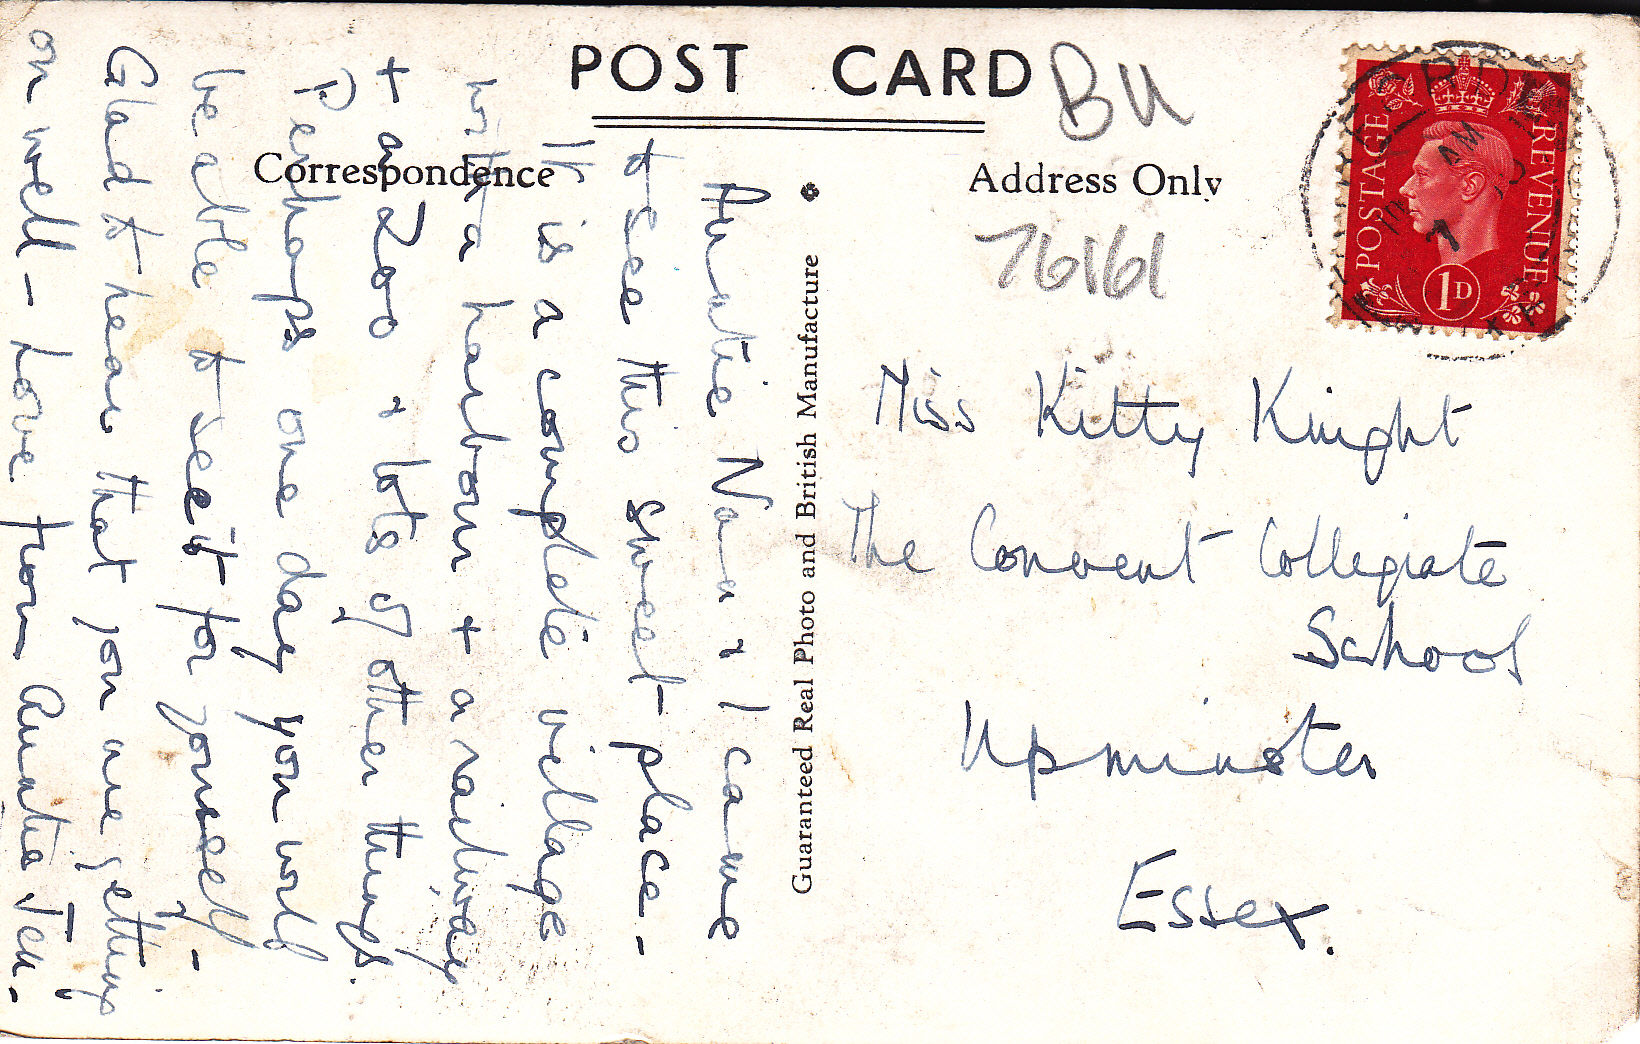 POST CARD
BU
Correspondence
Address Only
76161
POSTAGE
REVENUE
1D
AM
7
Guaranteed Real Photo and British Manufacture
Auntie Nan & I came
to see this sweet place -
It is a complete village
with a harbour + a railway
+ a Zoo & lots of other things.
Perhaps one day you will
be able to see it for yourself -
Glad to hear that you are getting
on well - Love from Auntie Jen.
Miss Kitty Knight
The Convent Collegiate
School
Upminster
Essex.